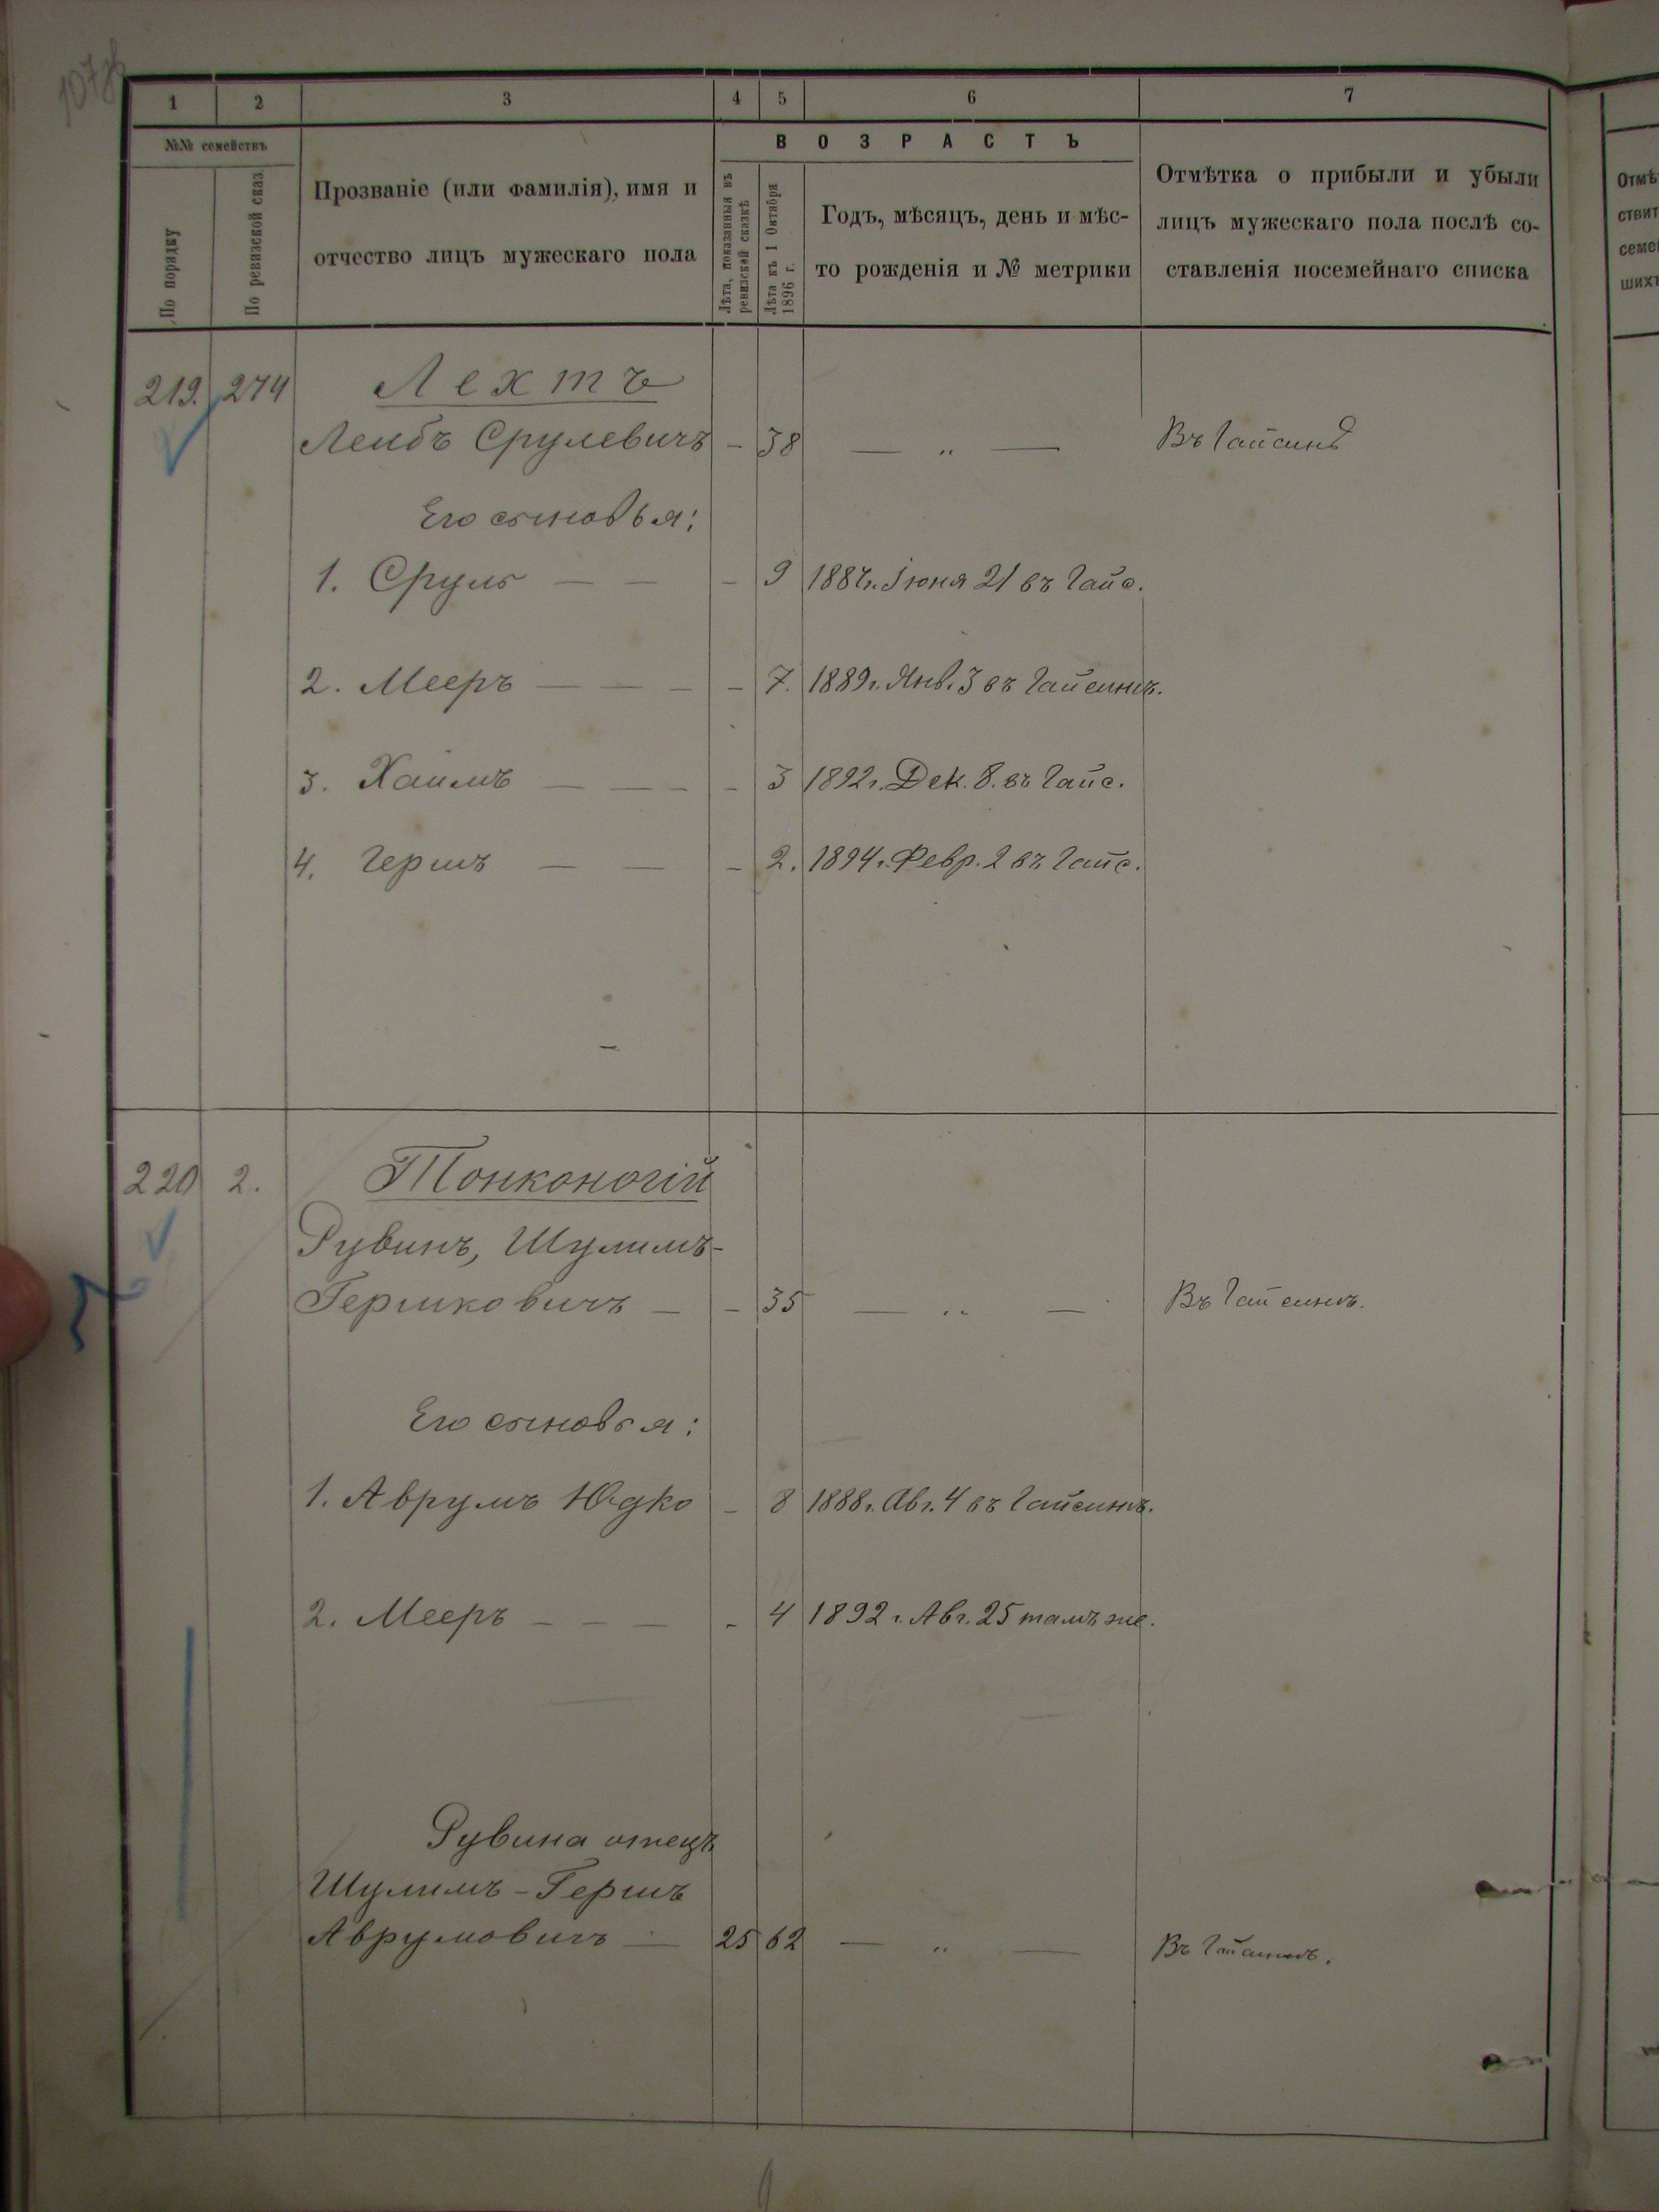 107об
1 2 3 4 5 6 7
№№ семействъ
По порядку
По ревизской сказ.
Прозваніе (или фамилія), имя и
отчество лицъ мужескаго пола
ВОЗРАСТЪ
Лѣта, показанныя въ
ревизской сказкѣ
Лѣта къ 1 Октября
1896 г.
Годъ, мѣсяцъ, день и мѣс-
то рожденія и № метрики
Отмѣтка о прибыли и убыли
лицъ мужескаго пола послѣ со-
ставленія посемейнаго списка
Отмѣ
ствит
семе
шихъ
219. 274 Лехтъ
Лейбъ Срулевичъ - 38 — „ — Въ Гайсинѣ
Его сыновья:
1. Сруль — — - 9 1887г. Іюня 21 въ Гайс.
2. Мееръ — — - - 7. 1889г. Янв. 3 въ Гайсинѣ.
3. Хаимъ — — - - 3 1892г. Дек. 8. въ Гайс.
4. Гершъ — — - 2. 1894г. Февр. 2 въ Гайс.
220 2. Тонконогій
Рувинъ, Шулимъ-
Гершковичъ — - 35 — „ — Въ Гайсинѣ.
Его сыновья:
1. Аврумъ Юдко - 8 1888г. Авг. 4 въ Гайсинѣ.
2. Мееръ - - — - 4 1892 г. Авг. 25 тамъ же.
Рувина отецъ
Шулимъ-Гершъ
Аврумовичъ — 25 62 — „ — Въ Гайсинѣ.